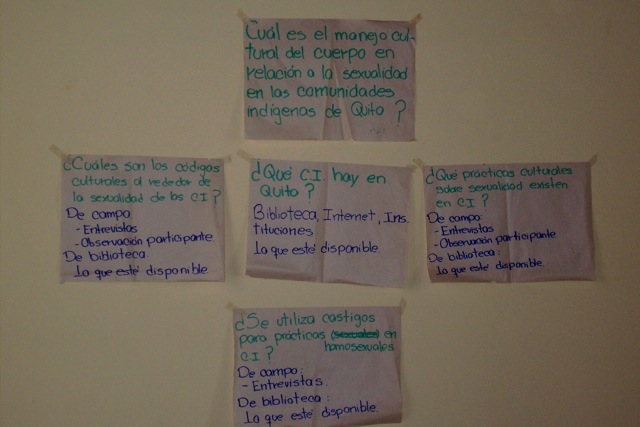 Cuál es el manejo cul-
tural del cuerpo en
relación a la sexualidad
en las comunidades
indígenas de Quito?
¿Cuáles son los códigos
culturales al rededor de
la sexualidad de las C.I?
De campo
- Entrevistas
- Observación participante.
De biblioteca.
Lo que esté disponible
¿Qué C.I. hay en
Quito?
Biblioteca, Internet, Ins-
tituciones
Lo que esté disponible
¿Qué prácticas culturales
sobre sexualidad existen
en C.I?
De campo:
- Entrevistas
- Observación participante
De biblioteca:
Lo que esté disponible.
¿Se utiliza castigos
para prácticas (sexuales) en
homosexuales
C.I?
De campo:
- Entrevistas.
De biblioteca:
Lo que esté disponible.